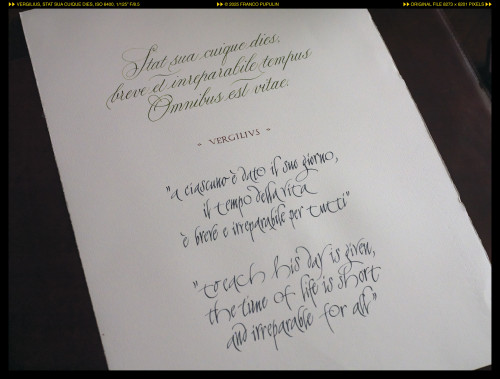 VERGILIUS, STAT SUA CUIQUE DIES. ISO 6400, 1/125" F/6.3
© 2025 FRANCO PUPULIN
ORIGINAL FILE 8273 × 6201 PIXELS
Stat sua cuique dies,
breve et inreparabile tempus
Omnibus est vitae.
- VERGILIVS -
"a ciascuno è dato il suo giorno,
il tempo della vita
è breve e irreparabile per tutti"
"to each his day is given,
the time of life is short
and irreparable for all"